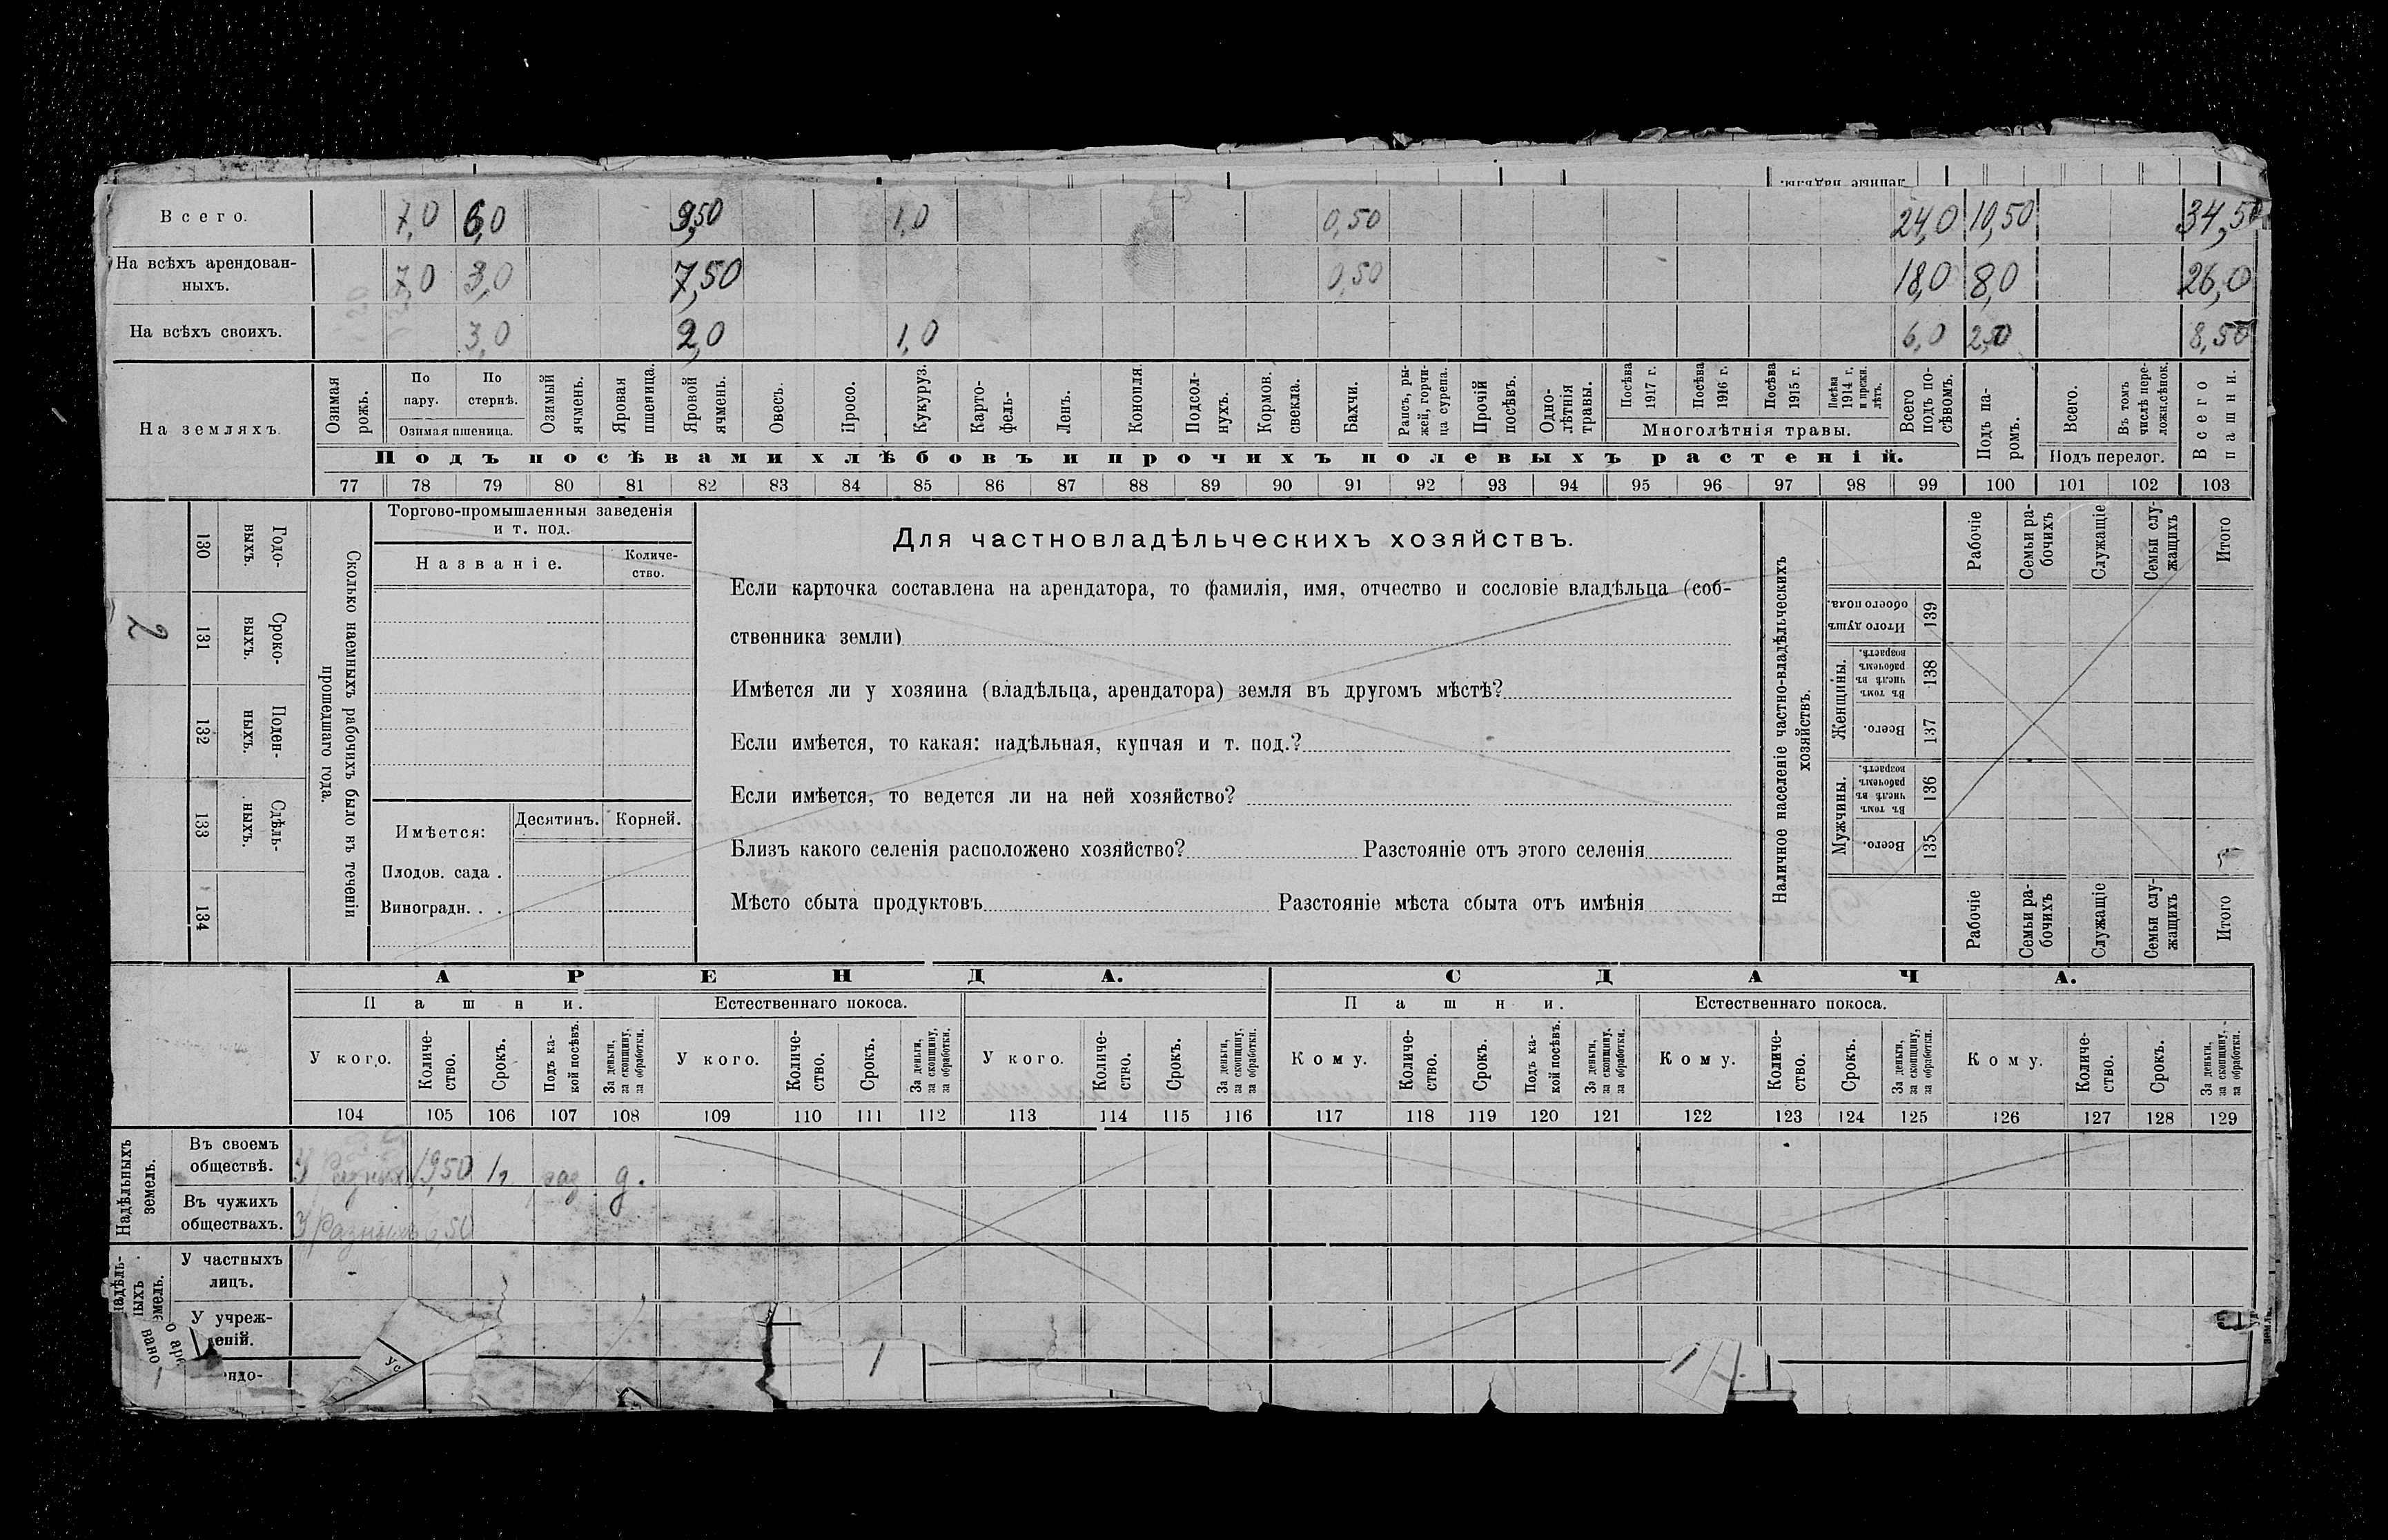 денные надѣлы.
Всего. 7,0 6,0 9,50 1,0 0,50 24,0 10,50 34,50
На всѣхъ арендован-
ныхъ. 7,0 3,0 7,50 0,50 18,0 8,0 26,0
На всѣхъ своихъ. 3,0 2,0 1,0 6,0 8,50
На земляхъ.
Озимая рожь.
По пару.
По стернѣ.
Озимая пшеница.
Озимый ячмень.
Яровая пшеница.
Яровой ячмень.
Овесъ.
Просо.
Кукуруз.
Карто-
фель-
Ленъ.
Конопля.
Подсол-
нухъ.
Кормов. свекла.
Бахчи.
Рапсъ, ры-
жей, горчи-
ца сурепа.
Прочій посѣвъ.
Одно-
лѣтнія травы.
Посѣва 1917 г.
Посѣва 1916 г.
Посѣва 1915 г.
Посѣва 1914 г. и прежн. лѣтъ.
Многолѣтнія травы.
Всего подъ по-
сѣвомъ.
Подъ па-
ромъ.
Всего.
Въ томъ числѣ пере-
ложн.сѣнок.
Подъ перелог.
Всего пашни.
Подъ посѣвами хлѣбовъ и прочихъ полевыхъ растеній.
77 78 79 80 81 82 83 84 85 86 87 88 89 90 91 92 93 94 95 96 97 98 99 100 101 102 103
2
130 131 132 133 134
Годо-
выхъ.
Сроко-
выхъ.
Поден-
ныхъ.
Сдѣль-
ныхъ.
Сколько наемныхъ рабочихъ было въ теченіи
прошедшаго года.
Торгово-промышленныя заведенія
и т. под.
Названіе.
Количе-
ство.
Имѣется:
Десятинъ. Корней.
Плодов. сада .
Виноградн. . .
Для частновладѣльческихъ хозяйствъ.
Если карточка составлена на арендатора, то фамилія, имя, отчество и сословіе владѣльца (соб-
ственника земли)
Имѣется ли у хозяина (владѣльца, арендатора) земля въ другомъ мѣстѣ?
Если имѣется, то какая: надѣльная, купчая и т. под.?
Если имѣется, то ведется ли на ней хозяйство?
Близъ какого селенія расположено хозяйство? Разстояніе отъ этого селенія
Мѣсто сбыта продуктовъ Разстояніе мѣста сбыта отъ имѣнія
Наличное населеніе частно-владѣльческихъ
хозяйствъ.
Итого душъ обоего пола. 139
Женщины.
Въ томъ числѣ въ рабочемъ возрастѣ. 138
Всего. 137
Мужчины.
Въ томъ числѣ въ рабочемъ возрастѣ. 136
Всего. 135
Рабочіе
Семьи ра-
бочихъ
Служащіе
Семьи слу-
жащихъ
Итого
Рабочіе
Семьи ра-
бочихъ
Служащіе
Семьи слу-
жащихъ
Итого
АРЕНДА. СДАЧА.
Пашни. Естественнаго покоса. Пашни. Естественнаго покоса.
У кого.
Количе-
ство.
Срокъ.
Подъ ка-
кой посѣвъ.
За деньги, за скопщину, за обработки.
У кого.
Количе-
ство.
Срокъ.
За деньги, за скопщину, за обработки.
У кого.
Количе-
ство.
Срокъ.
За деньги, за скопщину, за обработки.
Кому.
Количе-
ство.
Срокъ.
Подъ ка-
кой посѣвъ.
За деньги, за скопщину, за обработки.
Кому.
Количе-
ство.
Срокъ.
За деньги, за скопщину, за обработки.
Кому.
Количе-
ство.
Срокъ.
За деньги, за скопщину, за обработки.
104 105 106 107 108 109 110 111 112 113 114 115 116 117 118 119 120 121 122 123 124 125 126 127 128 129
Надѣльныхъ
земель.
Въ своемъ
обществѣ. У Разныхъ 19,50 д.
Въ чужихъ
обществахъ. У Разныхъ 6,50
У частныхъ
лицъ.
У учреж-